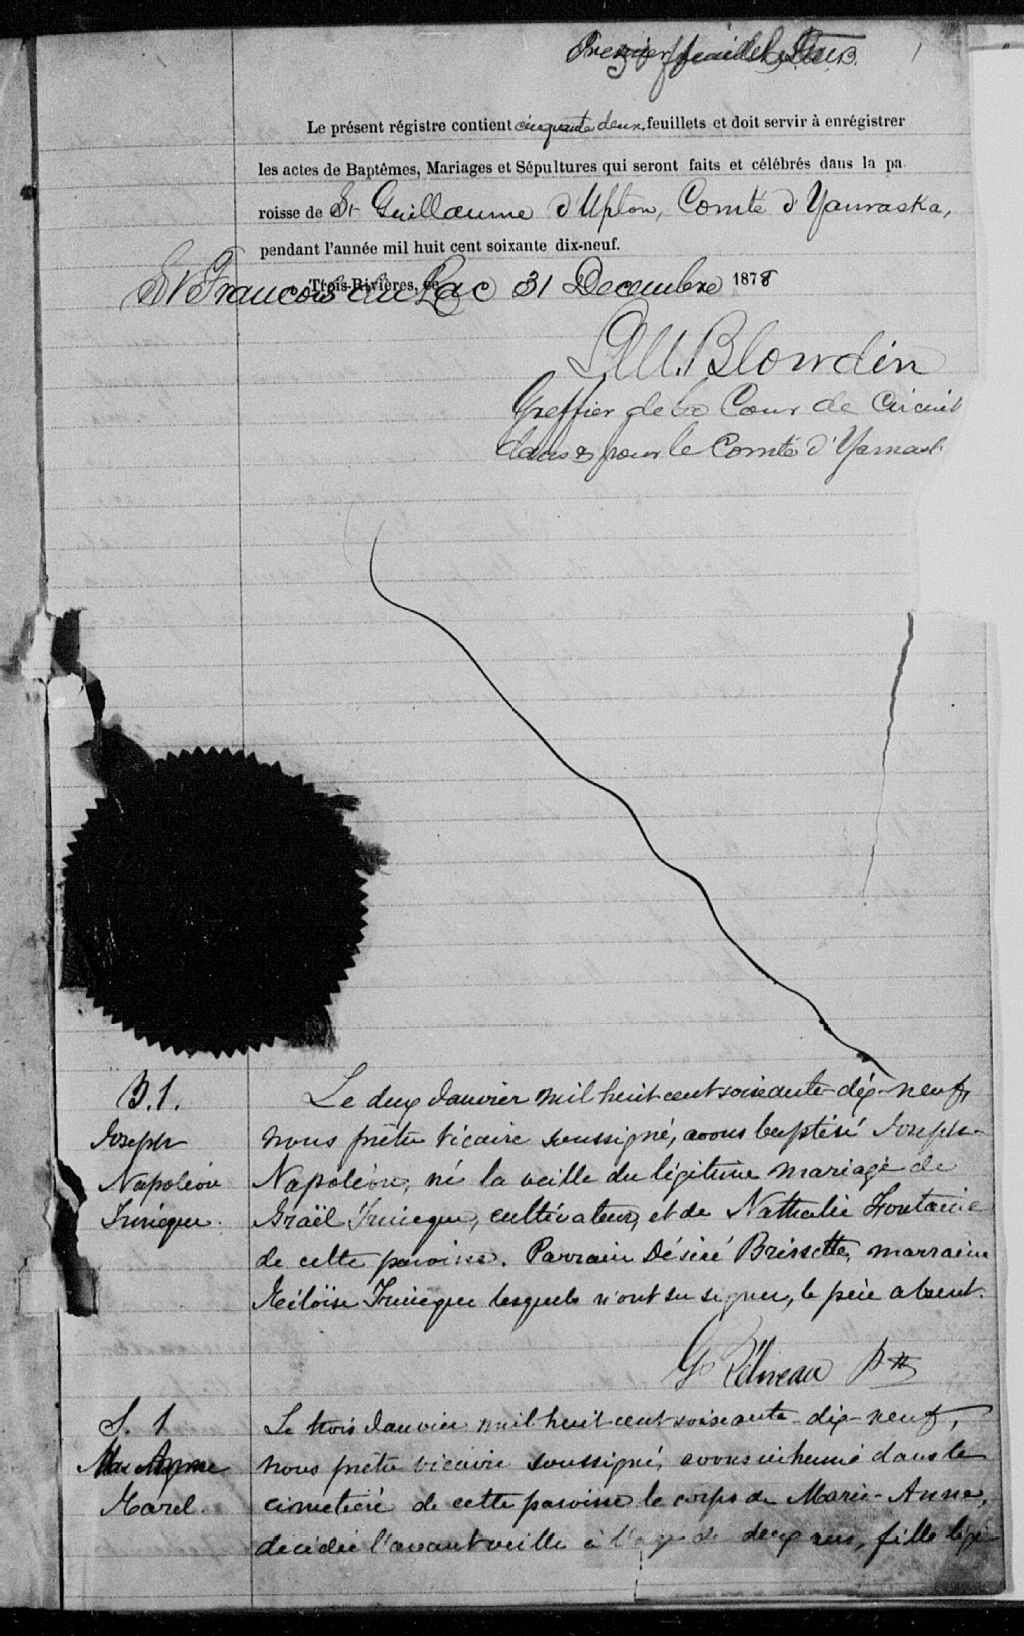 Premier feuillet
Le présent régistre contient cinquante deux feuillets et doit servir à enrégistrer
les actes de Baptêmes, Mariages et Sépultures qui seront faits et célébrés dans la pa
roisse de St Guillaume d'Upton, Comté d'Yamaska,
pendant l'année mil huit cent soixante dix-neuf.
Trois-Rivières, ce
St François du Lac 31 Decembre 1878
Blondin
Greffier de la Cour de Circuit
dans & pour le Comté d'Yamask
B. 1.
Joseph
Napoléon
Le deux Janvier mil huit cent soixante-dix-neuf,
nous prêtre vicaire soussigné, avons baptisé Joseph-
Napoléon, né la veille du légitime mariage de
Israël cultivateur, et de Nathalie Fontaine
de cette paroisse. Parrain Désiré Brissette, marraine
Héloïse lesquels n'ont su signer, le père absent.
G. Ptre
S. 1
Marie Anne
Harel
Le trois Janvier mil huit cent soixante-dix-neuf,
nous prêtre vicaire soussigné, avons inhumé dans le
cimetière de cette paroisse le corps de Marie-Anne,
décédée l'avant veille à l'age de deux ans, fille légi